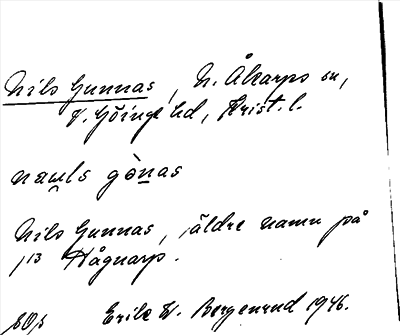 Nils Gunnas, N. Åkarps sn,
V. Göinge hd, Krist. l.
nau̯ls gònas
Nils Gunnas, äldre namn på
Hågnarp.
Erik W. Bergenrud 1946.